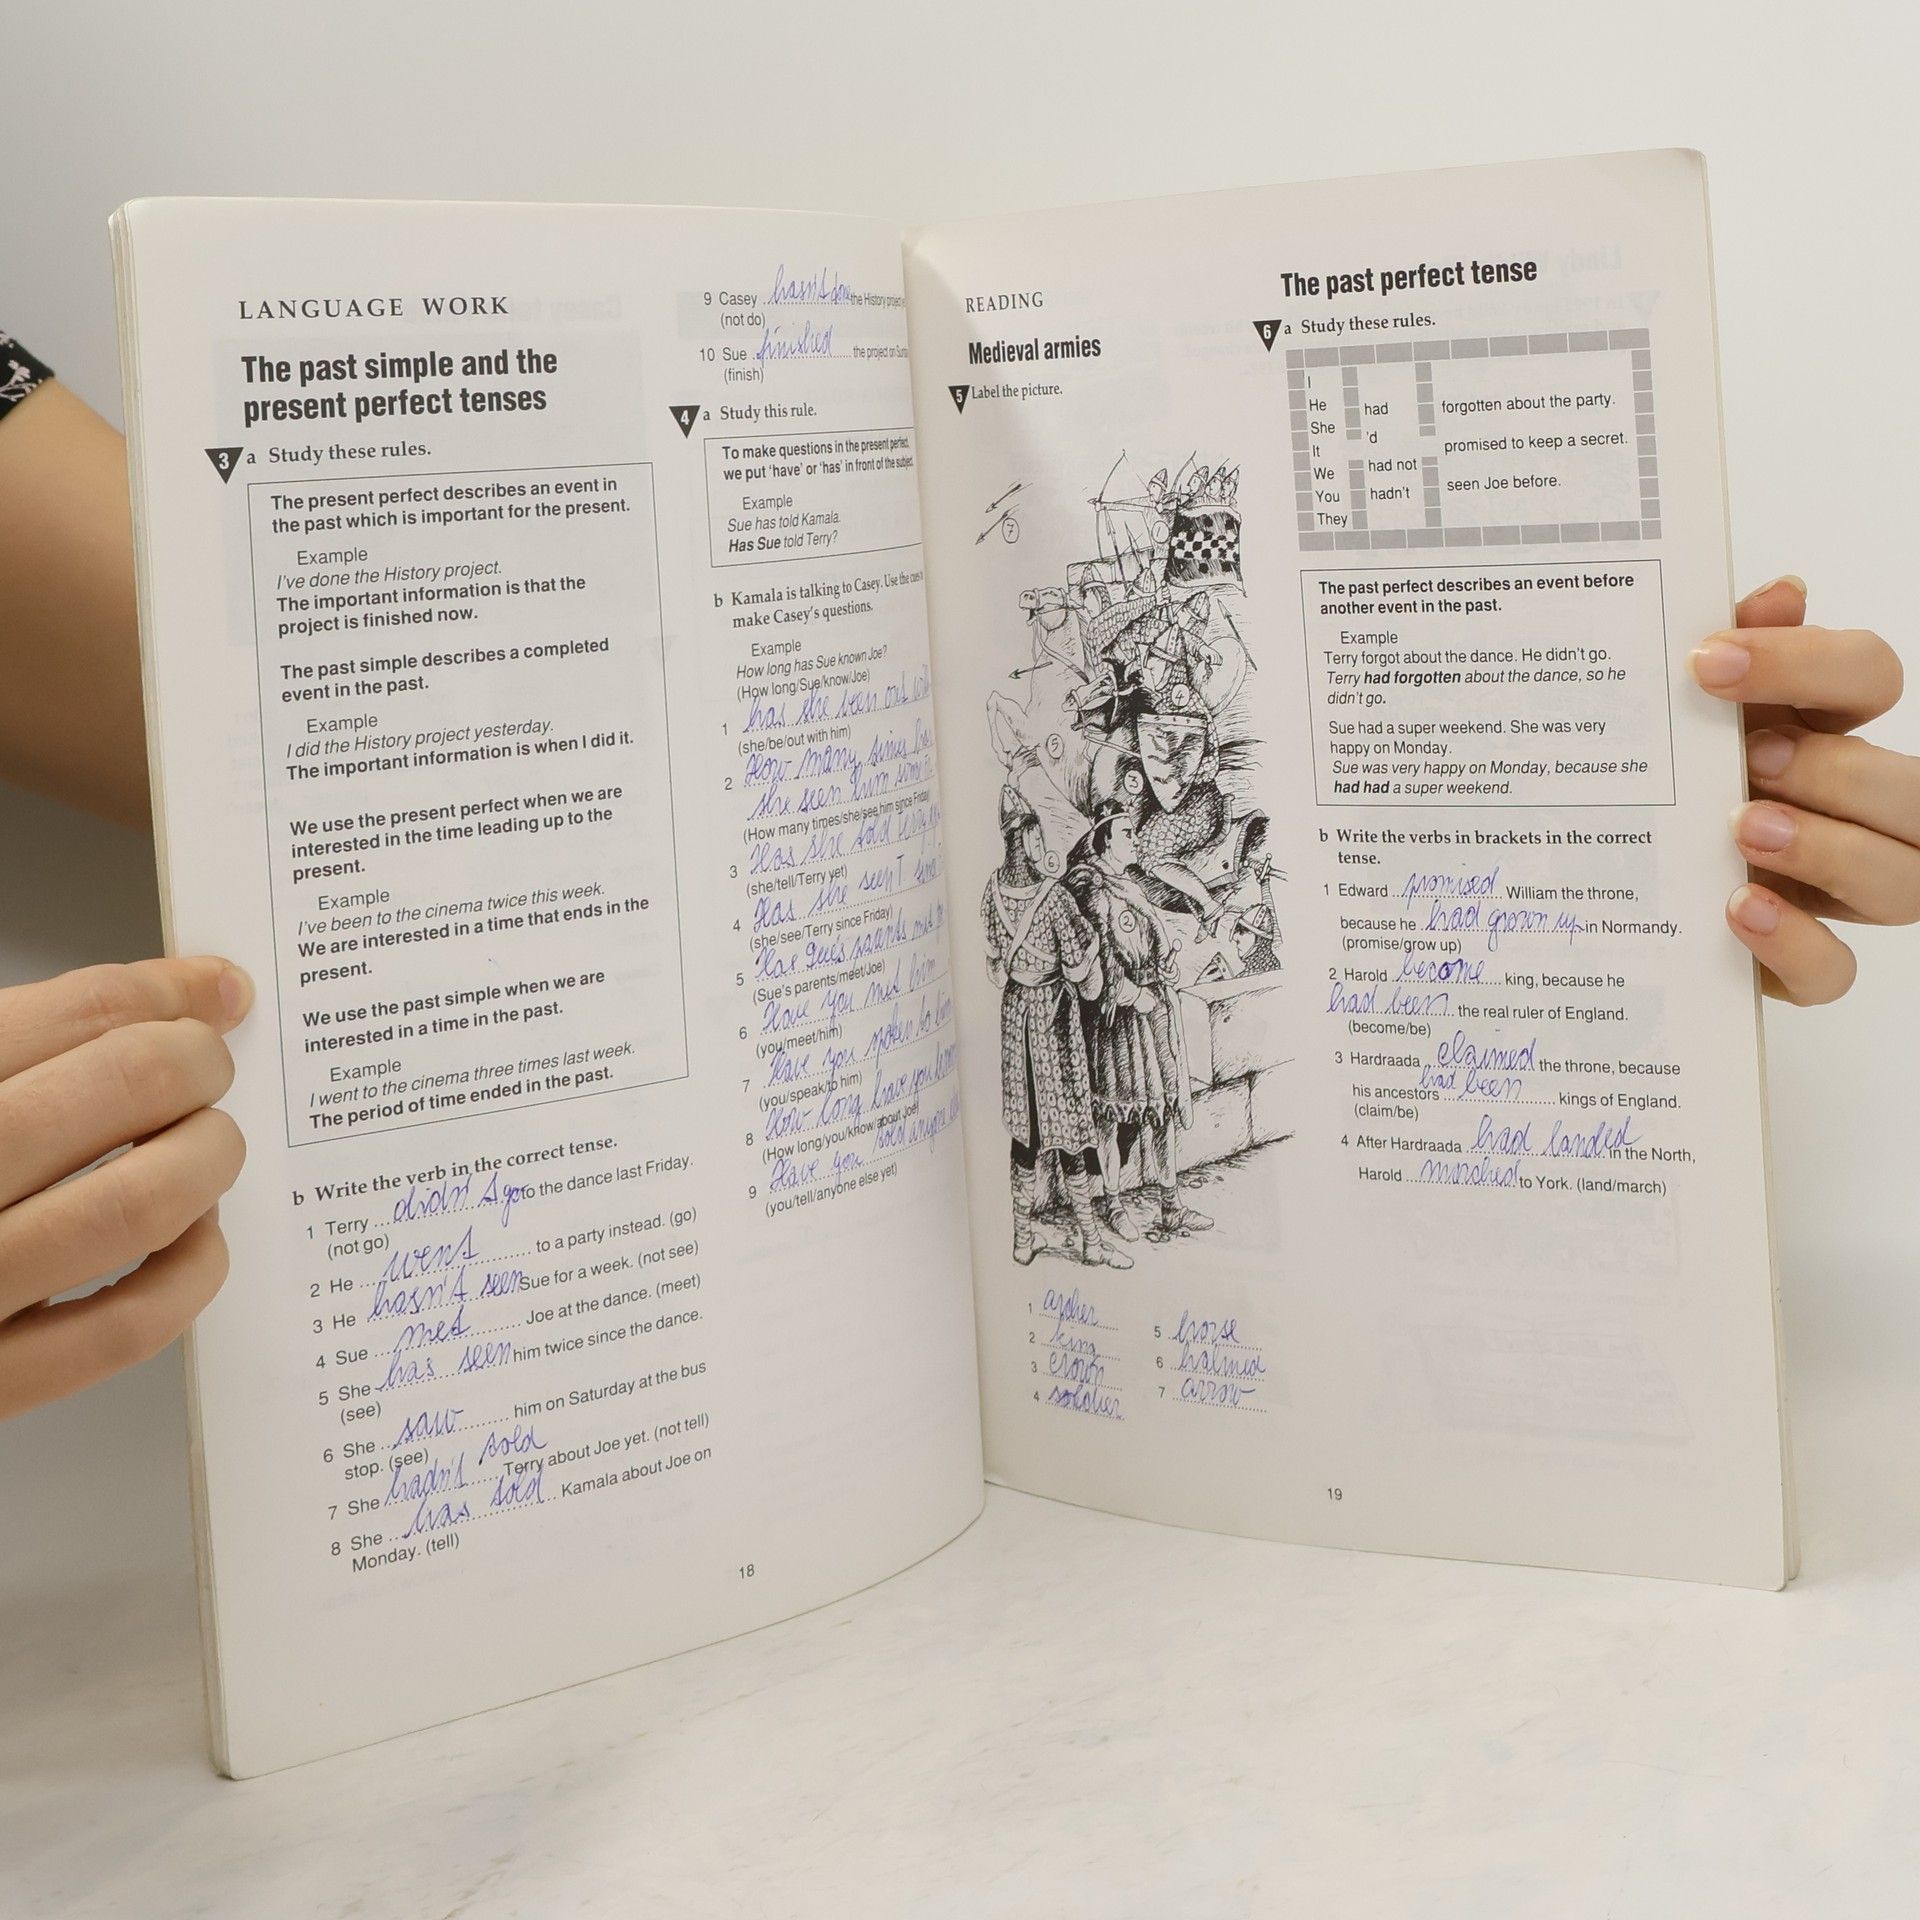 LANGUAGE WORK
The past simple and the
present perfect tenses
3 a Study these rules.
The present perfect describes an event in
the past which is important for the present.
Example
I've done the History project.
The important information is that the
project is finished now.
The past simple describes a completed
event in the past.
Example
I did the History project yesterday.
The important information is when I did it.
We use the present perfect when we are
interested in the time leading up to the
present.
Example
I've been to the cinema twice this week.
We are interested in a time that ends in the
present.
We use the past simple when we are
interested in a time in the past.
Example
I went to the cinema three times last week.
The period of time ended in the past.
b Write the verb in the correct tense.
1 Terry ... didn't go to the dance last Friday.
(not go)
2 He ... went ... to a party instead. (go)
3 He hasn't seen Sue for a week. (not see)
4 Sue ... met ... Joe at the dance. (meet)
5 She has seen him twice since the dance.
(see)
6 She ... saw ... him on Saturday at the bus
stop. (see)
7 She hadn't told ... Terry about Joe yet. (not tell)
8 She ... has told ... Kamala about Joe on
Monday. (tell)
9 Casey ... hasn't done the History project
(not do)
10 Sue ... finished ... the project on
(finish)
4 a Study this rule.
To make questions in the present perfect,
we put 'have' or 'has' in front of the subject.
Example
Sue has told Kamala.
Has Sue told Terry?
b Kamala is talking to Casey. Use the cues to
make Casey's questions.
Example
How long has Sue known Joe?
(How long/Sue/know/Joe)
1 has she been out
(she/be/out with him)
2 How many times
she seen him
(How many times/she/see him since Friday)
3 Has she told
(she/tell/Terry yet)
4 Has she seen T.
(she/see/Terry since Friday)
5 Has Sue's parents met
(Sue's parents/meet/Joe)
6 Have you met him
(you/meet/him)
7 Have you spoken to him
(you/speak/to him)
8 How long have you
(How long/you/know/about Joe)
9 Have you told anyone
(you/tell/anyone else yet)
18
READING
Medieval armies
5 Label the picture.
7
1
4
5
3
6
2
1 archer
2 king
3 crown
4 soldier
5 horse
6 halmed
7 arrow
The past perfect tense
6 a Study these rules.
I
He
She
It
We
You
They
had
'd
had not
hadn't
forgotten about the party.
promised to keep a secret.
seen Joe before.
The past perfect describes an event before
another event in the past.
Example
Terry forgot about the dance. He didn't go.
Terry had forgotten about the dance, so he
didn't go.
Sue had a super weekend. She was very
happy on Monday.
Sue was very happy on Monday, because she
had had a super weekend.
b Write the verbs in brackets in the correct
tense.
1 Edward ... promised ... William the throne,
because he had grown up in Normandy.
(promise/grow up)
2 Harold ... become ... king, because he
had been ... the real ruler of England.
(become/be)
3 Hardraada ... claimed the throne, because
his ancestors ... had been ... kings of England.
(claim/be)
4 After Hardraada ... had landed in the North,
Harold ... marched to York. (land/march)
19